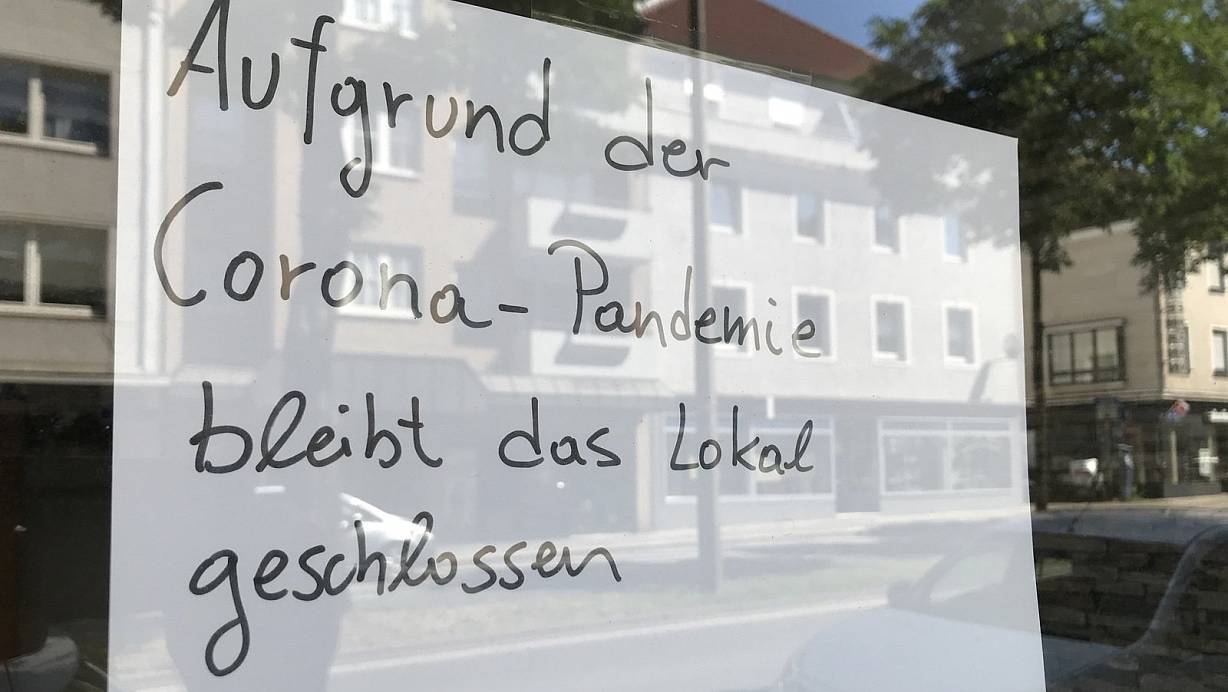 Aufgrund der
Corona-Pandemie
bleibt das Lokal
geschlossen